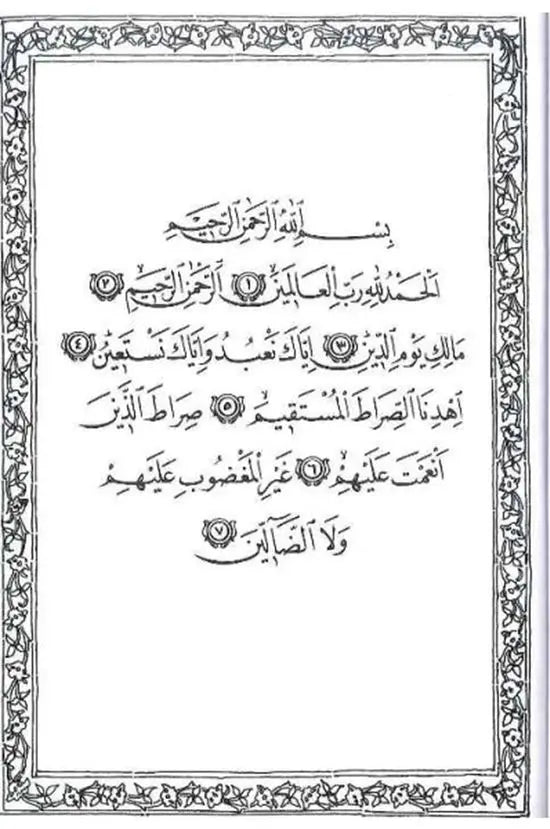 بِسْمِ اللّٰهِ الرَّحْمٰنِ الرَّحِيمِ
اَلْحَمْدُ لِلّٰهِ رَبِّ الْعَالَمِينَ ﴿١﴾ اَلرَّحْمٰنِ الرَّحِيمِ ﴿٢﴾
مَالِكِ يَوْمِ الدِّينِ ﴿٣﴾ اِيَّاكَ نَعْبُدُ وَاِيَّاكَ نَسْتَعِينُ ﴿٤﴾
اِهْدِنَا الصِّرَاطَ الْمُسْتَقِيمَ ﴿٥﴾ صِرَاطَ الَّذِينَ
اَنْعَمْتَ عَلَيْهِمْ ﴿٦﴾ غَيْرِ الْمَغْضُوبِ عَلَيْهِمْ
وَلَا الضَّٓالِّينَ ﴿٧﴾